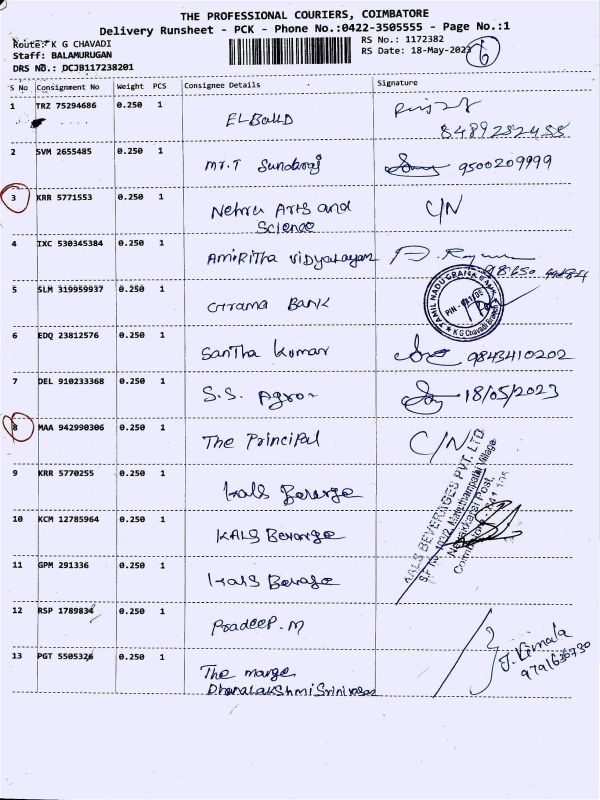 THE PROFESSIONAL COURIERS, COIMBATORE
Delivery Runsheet - PCK - Phone No.:0422-3505555 - Page No.:1
Route: K G CHAVADI
RS No.: 1172382
Staff: BALAMURUGAN
RS Date: 18-May-2023
6
DRS No.: DCJB117238201
S No Consignment No Weight PCS Consignee Details Signature
1 TRZ 75294686 0.250 1
2 SVM 2655485 0.250 1 Mr.T Sundaraj 9500209999
3 KRR 5771553 0.250 1 Nehru Arts and C/N
Science
4 IXC 530345384 0.250 1 AmiRitha vidyalayam
98650
5 SLM 319959937 0.250 1 Grama BANK
TAMIL NADU GRAMA BANK
K G Chavadi Branch
6 EDQ 23812576 0.250 1 Santha Kumar 9843410202
7 DEL 910233368 0.250 1 S.S. Agro 18/05/2023
8 MAA 942990306 0.250 1 The Principal C/N
9 KRR 5770255 0.250 1 kals Berarge
KALS BEVERAGES PVT. LTD
S.F. No. 103/2, Mavuthampathi Village
Post,
Coimbatore
10 KCM 12785964 0.250 1 KALS Berarge
11 GPM 291336 0.250 1 kals Berage
12 RSP 1789834 0.250 1 Pradeep.M
13 PGT 5505326 0.250 1 The marge J. Vimala
DhanalakShmi Srinivasan 9791630730